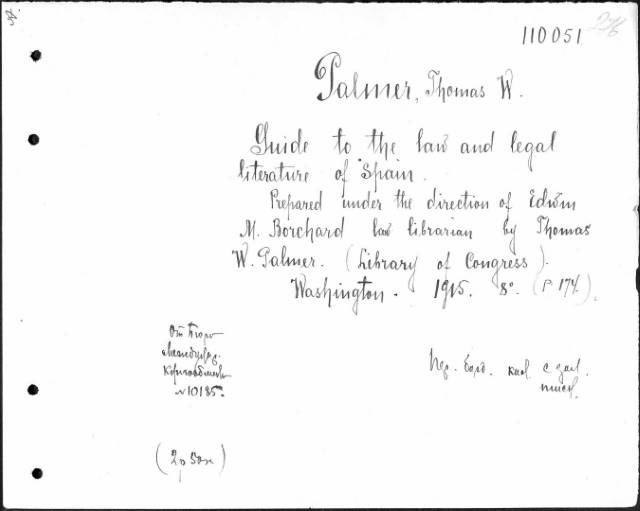 110051
276
Palmer, Thomas W.
Guide to the law and legal
literature of Spain.
Prepared under the direction of Edwin
M. Borchard law librarian by Thomas
W. Palmer. (Library of Congress).
Washington. 1915. 8°. (P 174).
От Бюро
Междунар.
№ 10185.
Пер. кол. с зап.
(2р 50к)